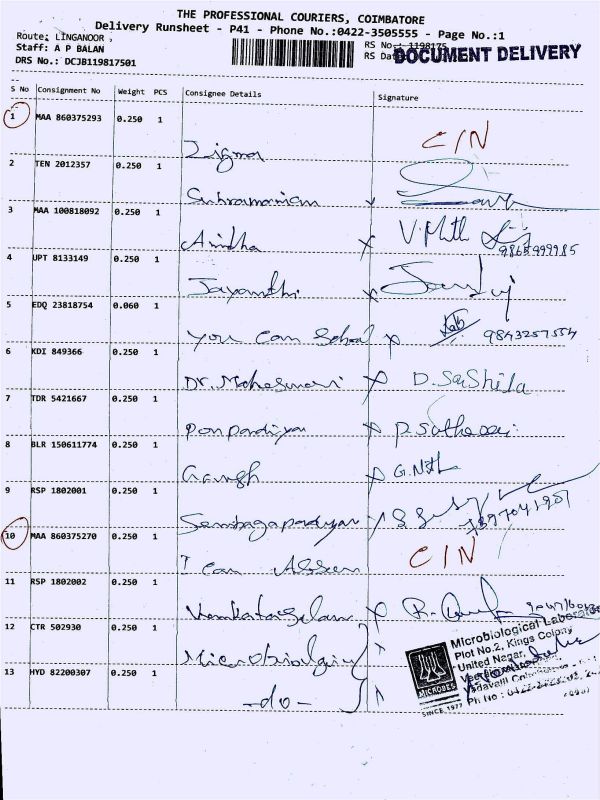 THE PROFESSIONAL COURIERS, COIMBATORE
Delivery Runsheet - P41 - Phone No.:0422-3505555 - Page No.:1
Route: LINGANOOR ,
Staff: A P BALAN
DRS No.: DCJB119817501
RS No.: 1198175
RS Da
DOCUMENT DELIVERY
S No Consignment No Weight PCS Consignee Details Signature
1 MAA 860375293 0.250 1 C/N
2 TEN 2012357 0.250 1 Subramaniam
3 MAA 100818092 0.250 1 Anidha
4 UPT 8133149 0.250 1 Jayanthi
5 EDQ 23818754 0.060 1 you can School x 9843257554
6 KDI 849366 0.250 1 Dr. Maheswari x D. SaiShila
7 TDR 5421667 0.250 1 Ponpandiyan x
8 BLR 150611774 0.250 1 Gangh x G.Nith
9 RSP 1802001 0.250 1 Senbagapandiyan
10 MAA 860375270 0.250 1 I Can C/N
11 RSP 1802002 0.250 1 Venkataselam x
12 CTR 502930 0.250 1 Microbiolgy
13 HYD 82200307 0.250 1 -do-
Microbiological Laboratory
Plot No.2, Kings Colony
United Nagar,
MICROBES
SINCE 1977
Ph No : 0422-